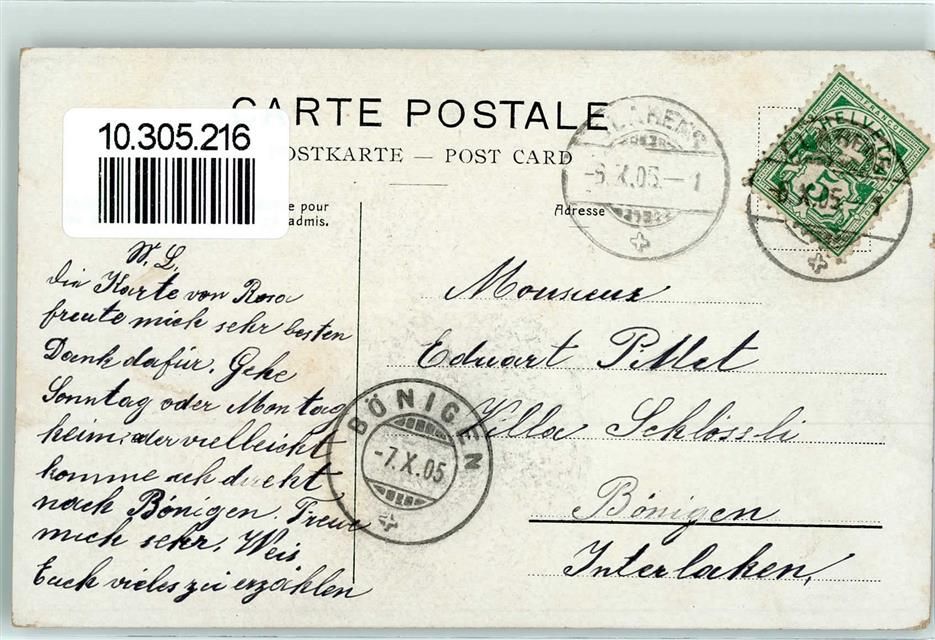 CARTE POSTALE
10.305.216
POSTKARTE — POST CARD
e pour
admis.
Adresse
-6.X.05.-1
HELVETIA
5
6.X.05 1
W. L.
Die Karte von Rosa
freute mich sehr besten
Dank dafür. Gehe
Sonntag oder Montag
heim oder vielleicht
komme ich direkt
nach Bönigen. Freue
mich sehr. Weis
Euch vieles zu erzählen
Monsieur
Eduart Pillet
Villa Schlössli
Bönigen
Interlaken,
BÖNIGEN
-7.X.05